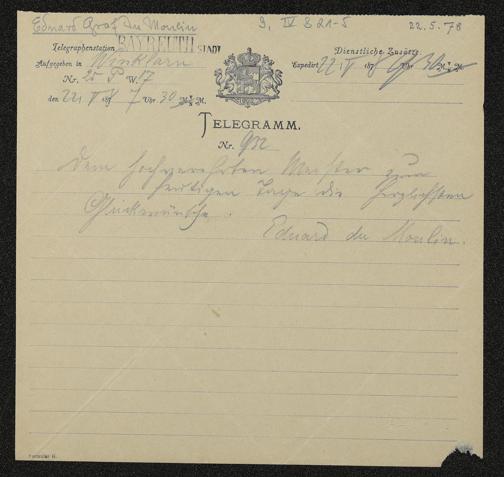 Eduard Graf du Moulin
9, IV B 21-5
22.5.78
Telegraphenstation BAYREUTH STADT
Dienstliche Zusätze:
Aufgegeben in Winklarn
Expedirt 22/V 1878 Uhr 30 M. M.
Nr. 25 P. W. 17
den 22/V 1878 7 Uhr 30 M. M.
TELEGRAMM.
Nr.
Dem hochverehrten Meister zum
heutigen Tage die herzlichsten
Glückwünsche.
Eduard du Moulin.